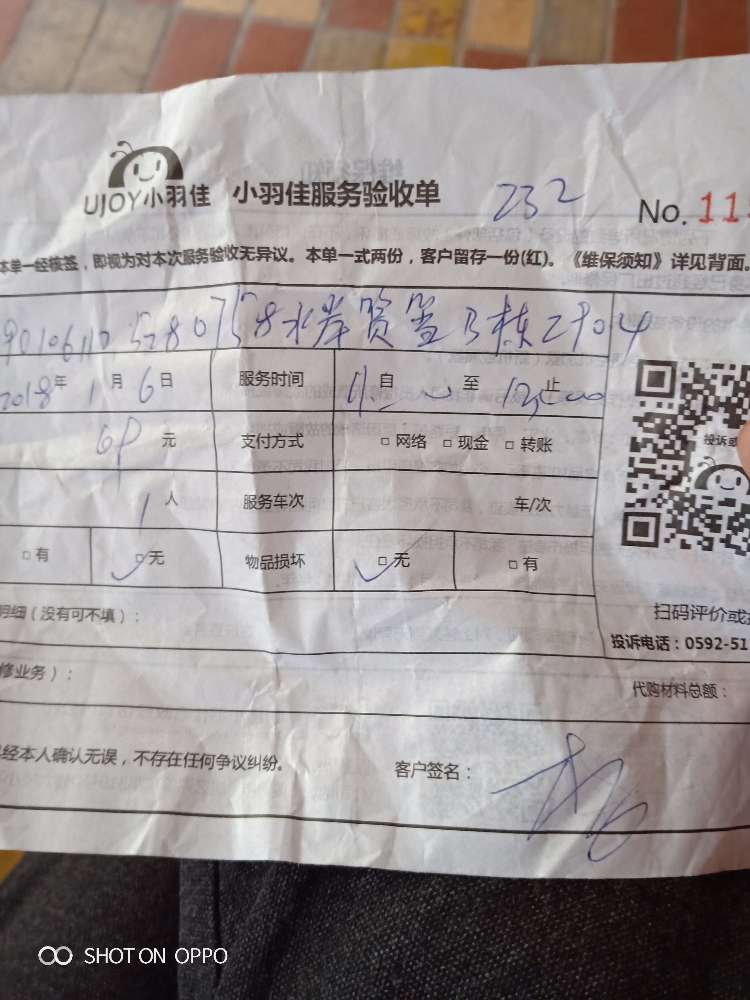 UJOY小羽佳 小羽佳服务验收单 232 No. 11
本单一经核签，即视为对本次服务验收无异议。本单一式两份，客户留存一份(红)。《维保须知》详见背面。
B栋2904
2018年1月6日 服务时间 自 至 止
69元 支付方式 □网络 □现金 □转账
1人 服务车次 车/次
□有 □无 物品损坏 □无 □有
投诉或
明细（没有可不填）：
扫码评价或
投诉电话：0592-51
修业务）：
代购材料总额：
经本人确认无误，不存在任何争议纠纷。 客户签名：
SHOT ON OPPO